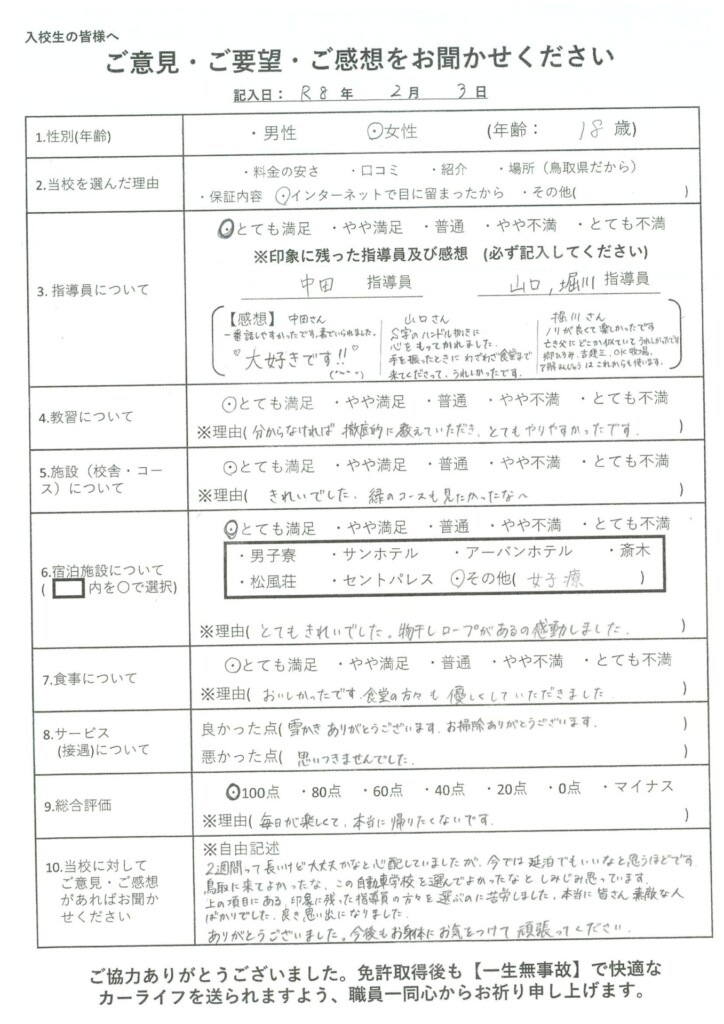 入校生の皆様へ
ご意見・ご要望・ご感想をお聞かせください
記入日： R8 年 2 月 3 日
1.性別(年齢) ・男性 ⊙女性 (年齢： 18 歳)
2.当校を選んだ理由
・料金の安さ ・口コミ ・紹介 ・場所（鳥取県だから）
・保証内容 ⊙インターネットで目に留まったから ・その他( )
3.指導員について
⊙とても満足 ・やや満足 ・普通 ・やや不満 ・とても不満
※印象に残った指導員及び感想 （必ず記入してください）
中田 指導員 山口,堀川 指導員
【感想】 中田さん
一番話しやすかったです。
♡大好きです!!♡
山口さん
S字のハンドル捌きに
心をもってかれました。
手を振ったときにわざわざ食堂まで
来てくださって、うれしかったです。
堀川さん
ノリが良くて楽しかったです
亡き父にどこか似ていてうれしかったです
郷ひろみ、吉建三、OK牧場、
了解まんじゅうはこれからも使います。
4.教習について
⊙とても満足 ・やや満足 ・普通 ・やや不満 ・とても不満
※理由( 分からなければ 徹底的に教えていただき、とてもやりやすかったです。 )
5.施設（校舎・コース）について
⊙とても満足 ・やや満足 ・普通 ・やや不満 ・とても不満
※理由( きれいでした。緑のコースも見たかったなへ )
6.宿泊施設について
( 内を〇で選択)
⊙とても満足 ・やや満足 ・普通 ・やや不満 ・とても不満
・男子寮 ・サンホテル ・アーバンホテル ・斎木
・松風荘 ・セントパレス ⊙その他( 女子療 )
※理由( とてもきれいでした。物干しロープがあるの感動しました. )
7.食事について
⊙とても満足 ・やや満足 ・普通 ・やや不満 ・とても不満
※理由( おいしかったです。食堂の方々も 優しくしていただきました )
8.サービス
(接遇)について
良かった点( 雪かきありがとうございます。お掃除ありがとうございます. )
悪かった点( 思いつきませんでした. )
9.総合評価
⊙100点 ・80点 ・60点 ・40点 ・20点 ・0点 ・マイナス
※理由( 毎日が楽しくて、本当に帰りたくないです。 )
10.当校に対して
ご意見・ご感想
があればお聞か
せください
※自由記述
2週間って長いけど大丈夫かなと心配していましたが、今では延泊でもいいなと思うほどです。
鳥取に来てよかったな、この自動車学校を選んでよかったなとしみじみ思っています。
上の項目にある、印象に残った指導員の方々を選ぶのに苦労しました。本当に皆さん素敵な人
ばかりでした。良き思い出になりました.
ありがとうございました。今後もお身体にお気をつけて 頑張ってください.
ご協力ありがとうございました。免許取得後も【一生無事故】で快適な
カーライフを送られますよう、職員一同心からお祈り申し上げます。